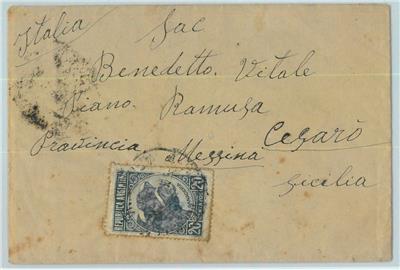 Italia
Sac
Benedetto. Vitale
Piano. Ramusa
Cesarò
Provincia Messina
Sicilia
REPUBLICA ARGENTINA
20